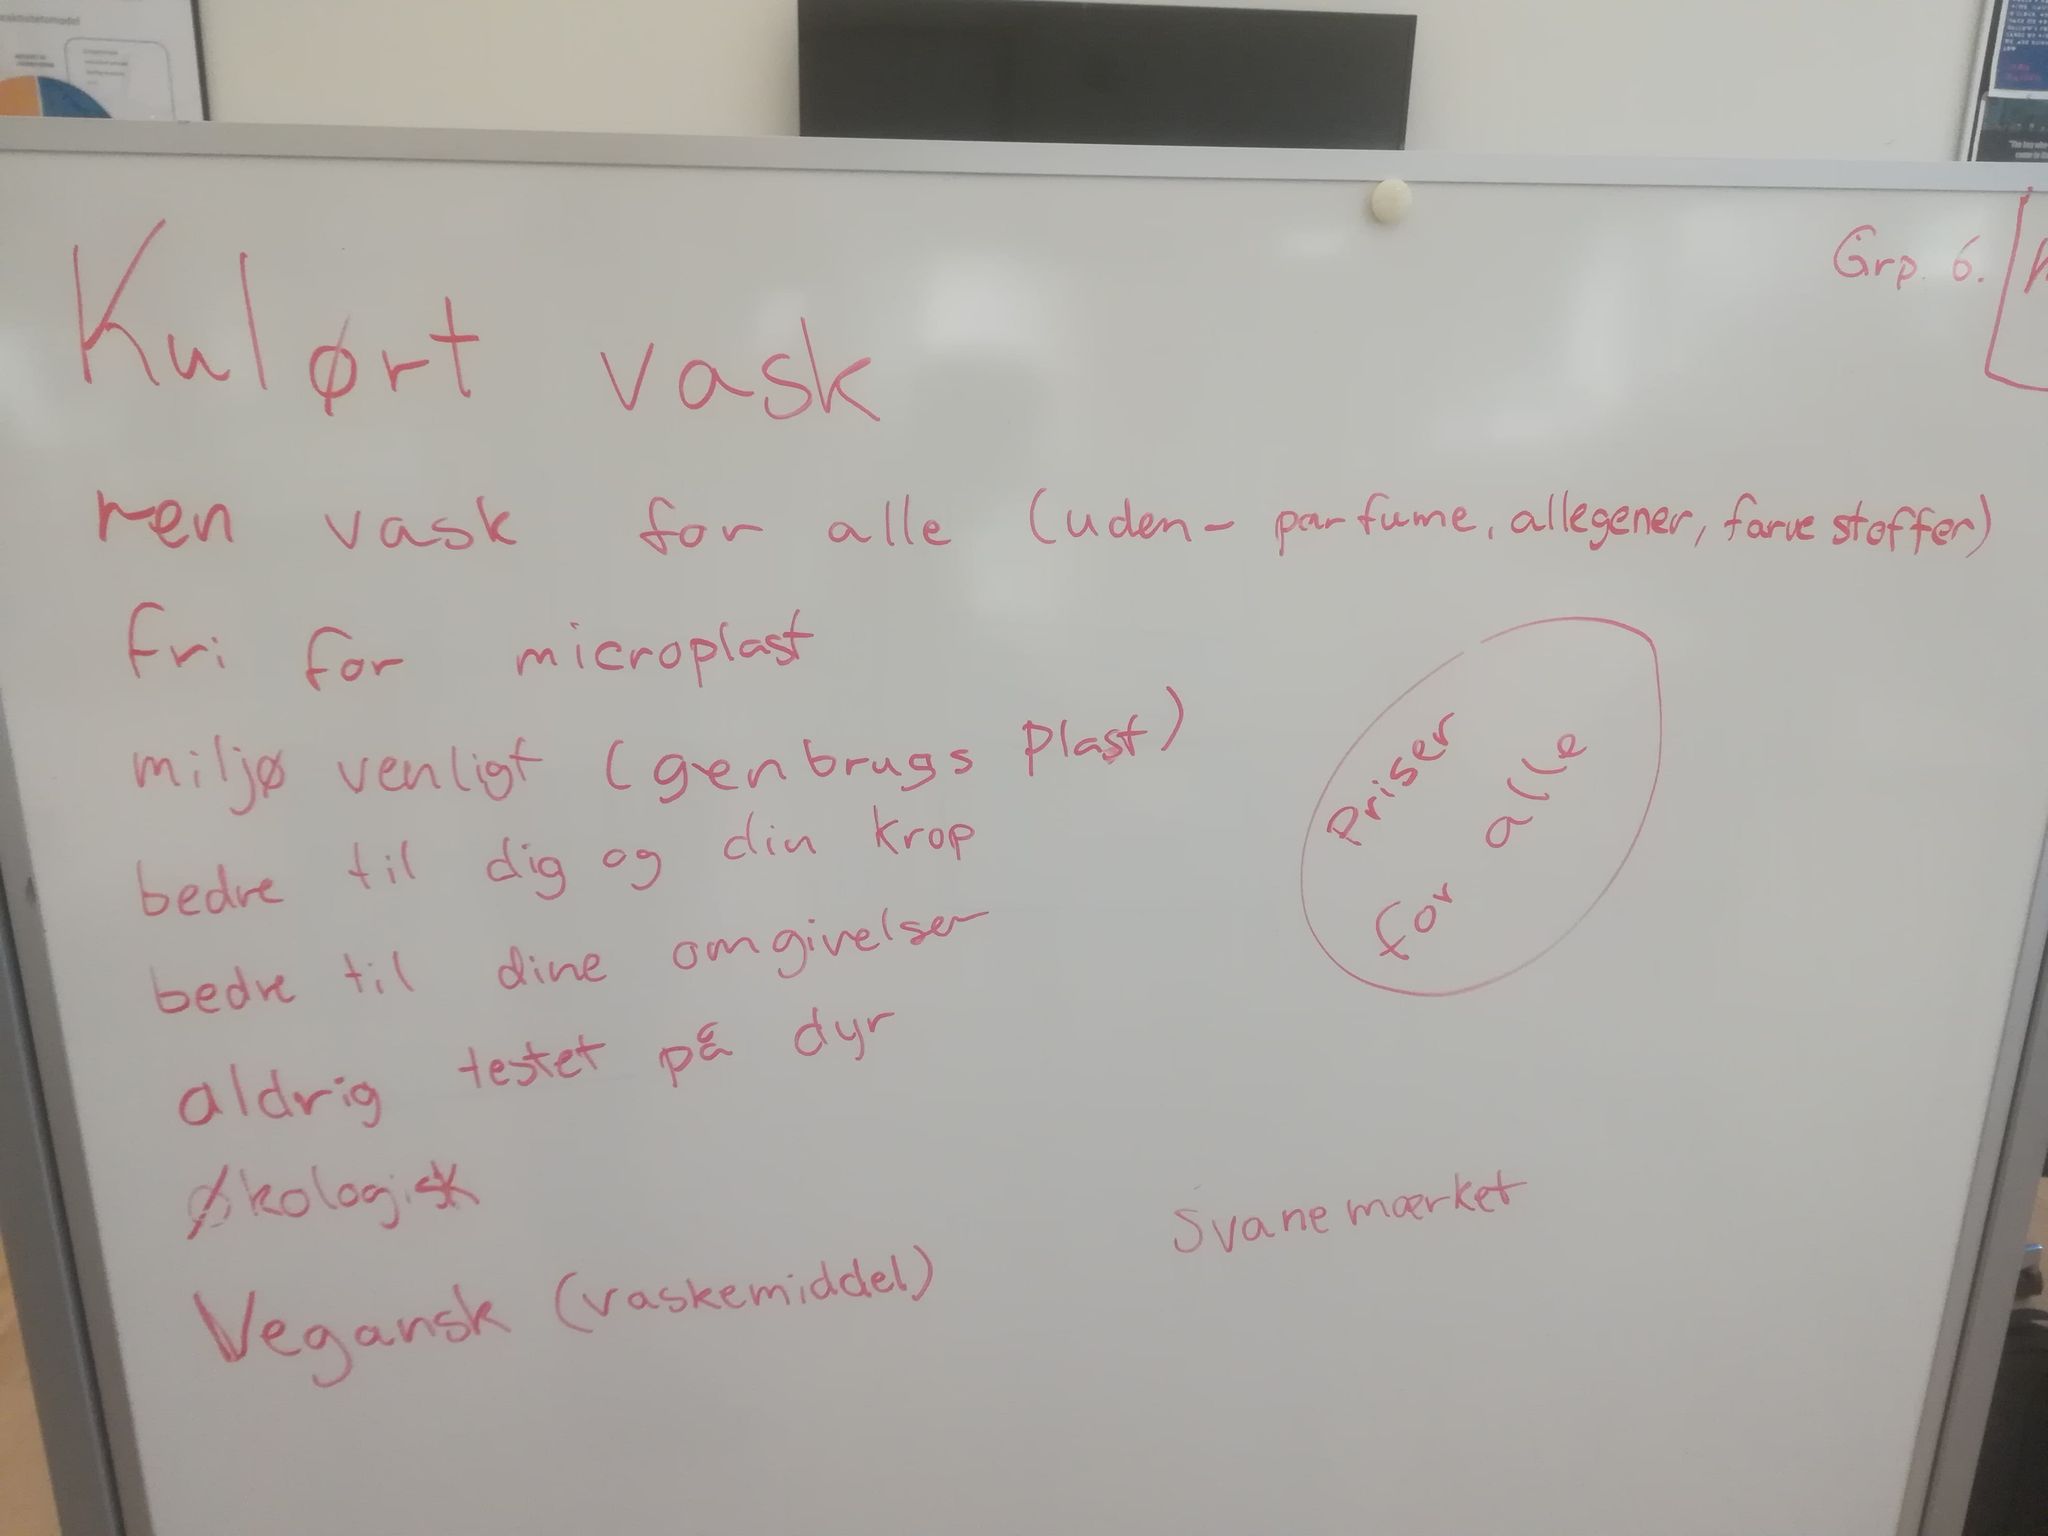 Grp. 6.
Kulørt vask
ren vask for alle (uden- parfume, allegener, farve stoffer)
fri for microplast
miljø venligt (genbrugs plast)
bedre til dig og din krop
bedre til dine omgivelser
aldrig testet på dyr
Økologisk
Vegansk (vaskemiddel)
Priser
for alle
Svanemærket